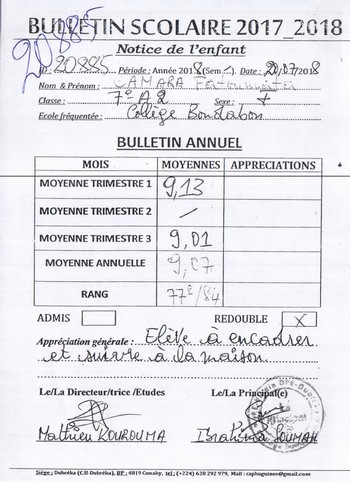 BULLETIN SCOLAIRE 2017_2018
20885
Notice de l'enfant
ID : 20885 Période : Année 2018 (Sem 2). Date : 20/07/2018
Nom & Prénom : CAMARA
Classe : 7e A2 Sexe : F
Ecole fréquentée : Collège
BULLETIN ANNUEL
MOIS MOYENNES APPRECIATIONS
MOYENNE TRIMESTRE 1 9,13
MOYENNE TRIMESTRE 2 /
MOYENNE TRIMESTRE 3 9,01
MOYENNE ANNUELLE 9,07
RANG 77e/84
ADMIS REDOUBLE X
Appréciation générale : Elève à encadrer
et suivre à la maison.
Le/La Directeur/trice /Etudes Le/La Principal(e)
Mathieu KOUROUMA Ibrahima SOUMAH
Siège : Dubréka (CU-Dubréka), BP : 4819 Conakry, tel : (+224) 628 292 979, Mail : caphuguinee@gmail.com